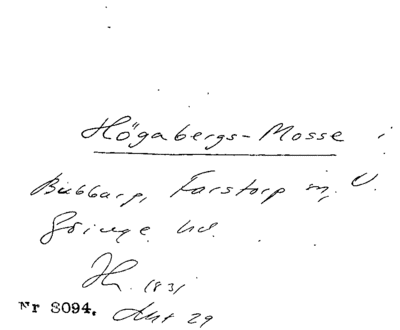 Högabergs-Mosse i
Bubbarp, Farstorp
Göinge hd.
1831
Nr 8094. Akt 29